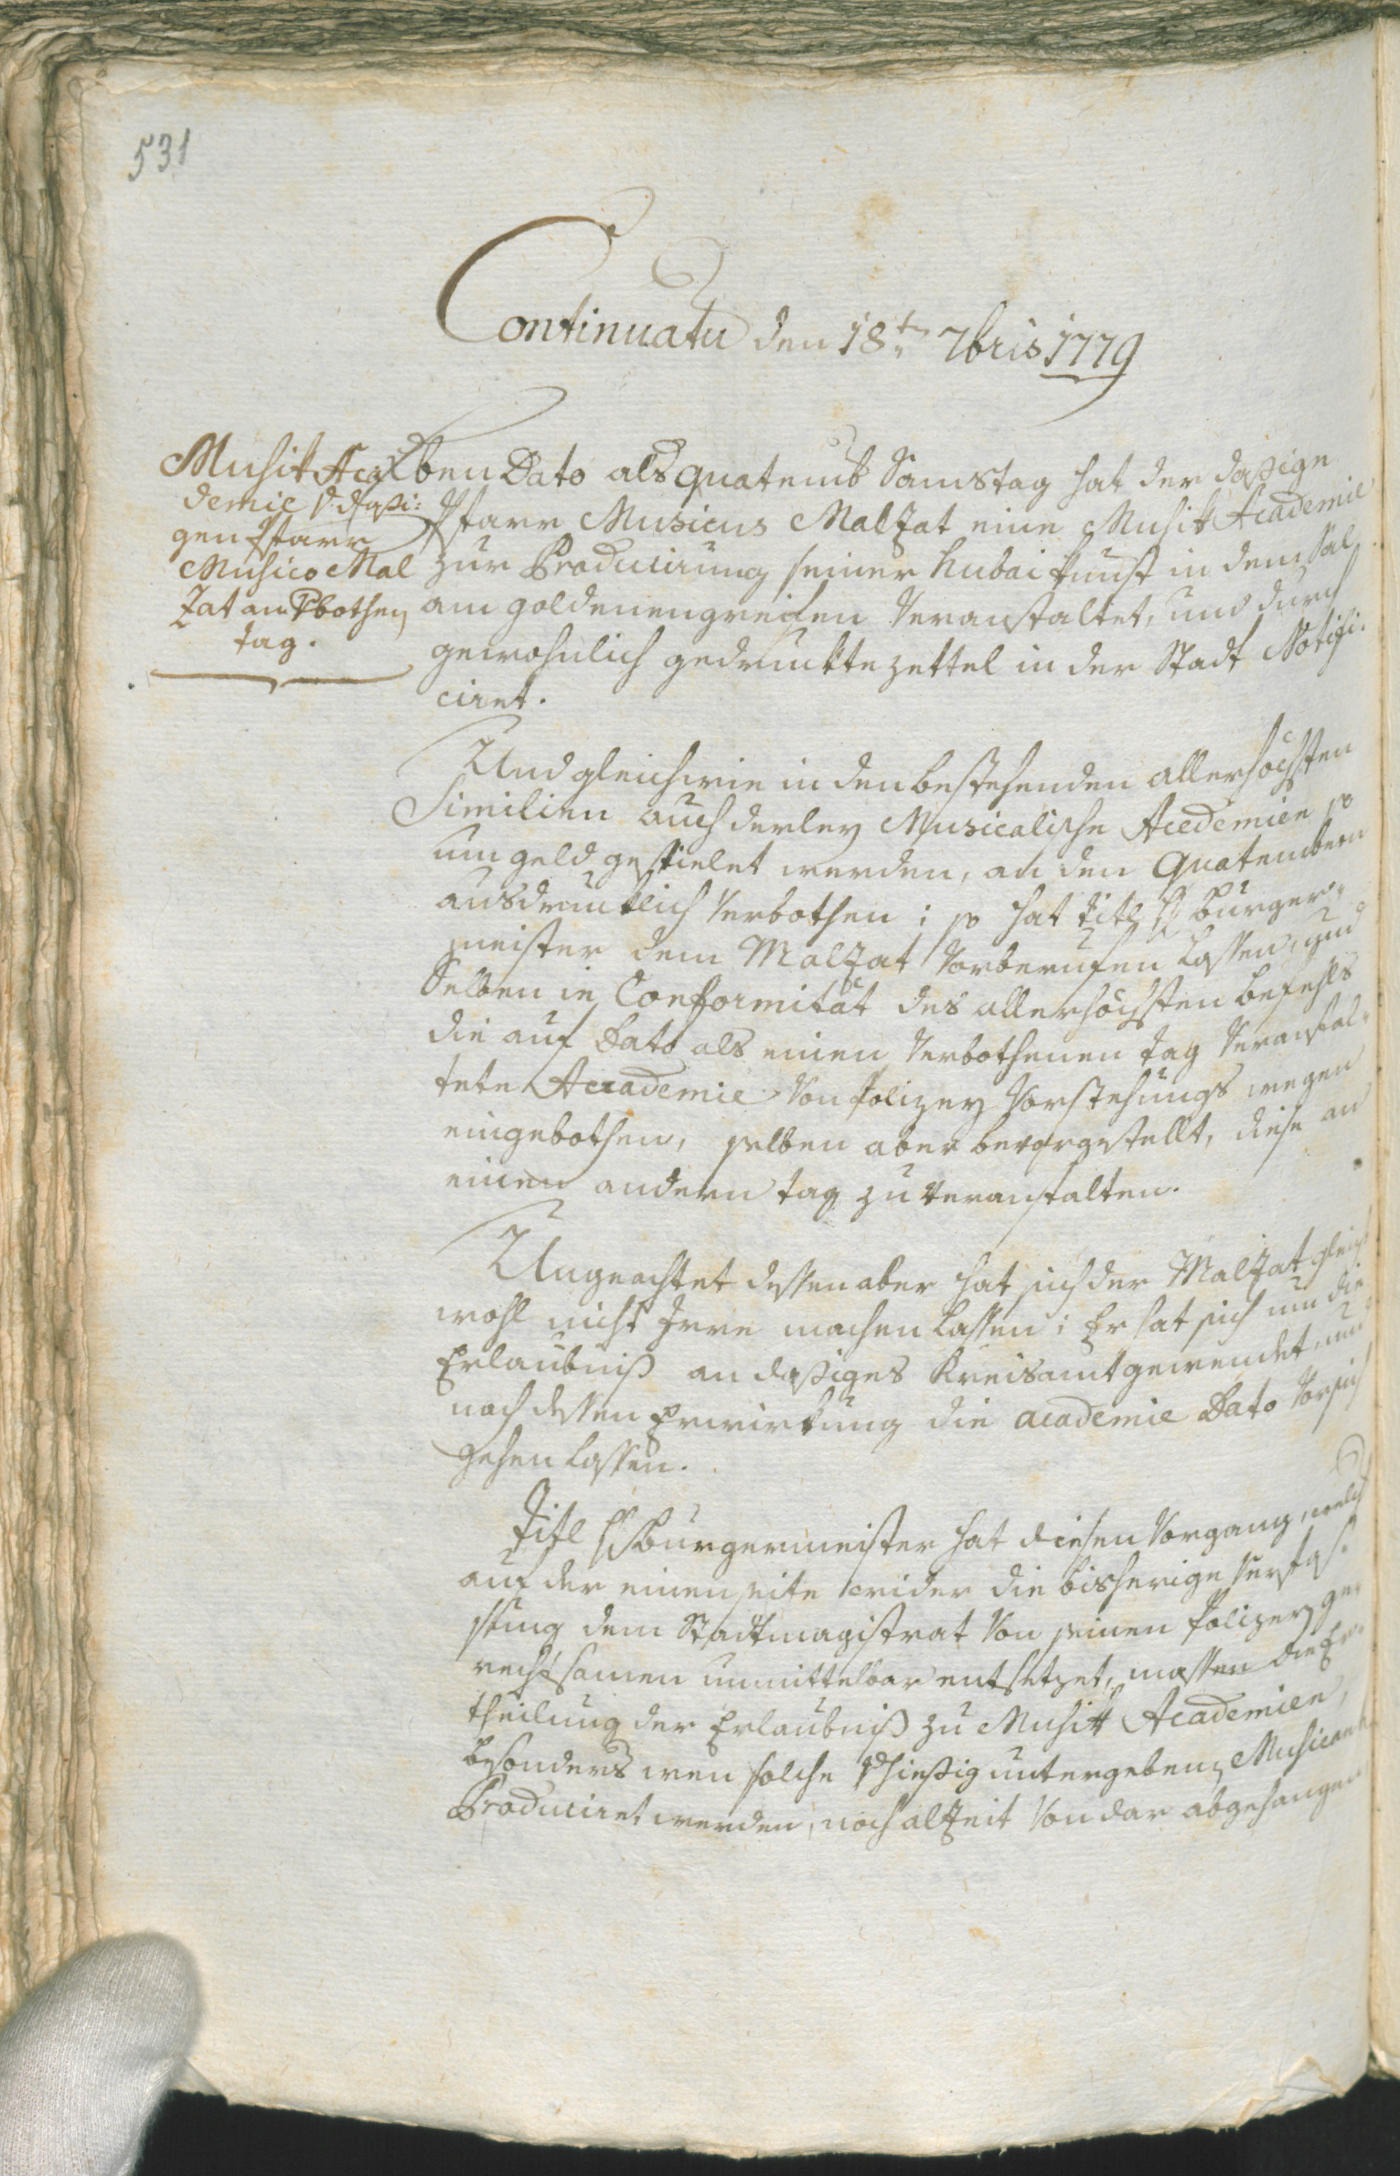 531
Continuatu den 18ten 7bris 1779
Musik Aca
demie v. dasi:
gen Pfarr
Musico Mal
zat am Vbothen
tag.
Eben Dato als quatemb Samstag hat der dasige
Pfarr Musicus Malzat eine Musik Academie
zur Producirung seiner hubai kunst in dem Sal
am goldenengreifen Veranstaltet, und durch
gewohnlich gedruckte zettel in der Stadt Notifi:
ciret.
Und gleichwie in den bestehenden allerhöchsten
Similien auch derley Musicalische Acedemien so
um geld gespielet werden, an den Quatembern
ausdrucklich Verbothen; so hat Titl H burger:
meister dem Malzat Vorberufen lassen, und
Selben in Conformität des allerhöchsten befehls
die auf Dato als einen Verbothenen tag Veranstal:
tete Accademie Von Polizey Vorstehungs wegen
eingebothen, selben aber bevorgestellt, diese an
einem andern tag zu Veranstalten.
Ungeachtet dessen aber hat sich der Malzat gleich
wohl nicht Irre machen lassen; Er hat sich um die
Erlaubniß an dasiges Kreisamt gewendet, und
nach dessen Erwirkung die academie Dato Vor sich
gehen lassen.
Titl H Burgermeister hat diesen Vorgang, welch
auf der einen seite wider die bisherige Verfas:
sung dem Stadtmagistrat Von seinen Polizey ge:
rechtsamen unmittelbar entsetzet, massen die Er:
theilung der Erlaubniß zu Musik Academien,
besonders wen solche Vhiesig untergebenen Musicanten
Produciret werden, noch alzeit Von dar abgehangen